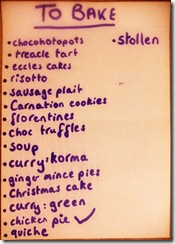 TO BAKE
• chocohotopots
• treacle tart
• eccles cakes
• risotto
• sausage plait
• Carnation cookies
• florentines
• choc truffles
• soup
• curry: korma
• ginger mince pies
• Christmas cake
• curry: green
• chicken pie ✓
• quiche
• stollen